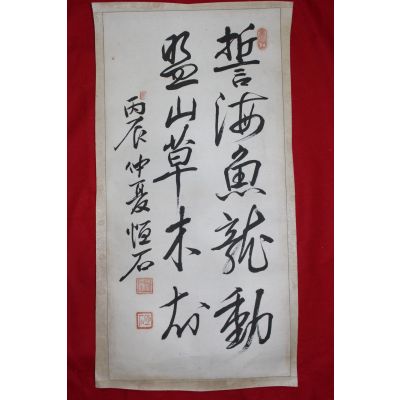 誓海魚龍動
盟山草木知
丙辰仲夏恒石